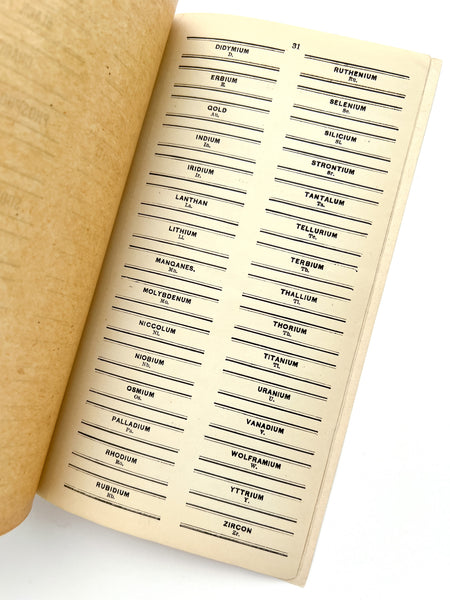 31
DIDYMIUM
D.
ERBIUM
E.
GOLD
Au.
INDIUM
In.
IRIDIUM
Ir.
LANTHAN
La.
LITHIUM
Li.
MANGANES.
Mn.
MOLYBDENUM
Mo.
NICCOLUM
Ni.
NIOBIUM
Nb.
OSMIUM
Os.
PALLADIUM
Pa.
RHODIUM
Ro.
RUBIDIUM
Rb.
RUTHENIUM
Ru.
SELENIUM
Se.
SILICIUM
Si.
STRONTIUM
Sr.
TANTALUM
Ta.
TELLURIUM
Te.
TERBIUM
Tb.
THALLIUM
Tl.
THORIUM
Th.
TITANIUM
Ti.
URANIUM
U.
VANADIUM
V.
WOLFRAMIUM
W.
YTTRIUM
Y.
ZIRCON
Zr.